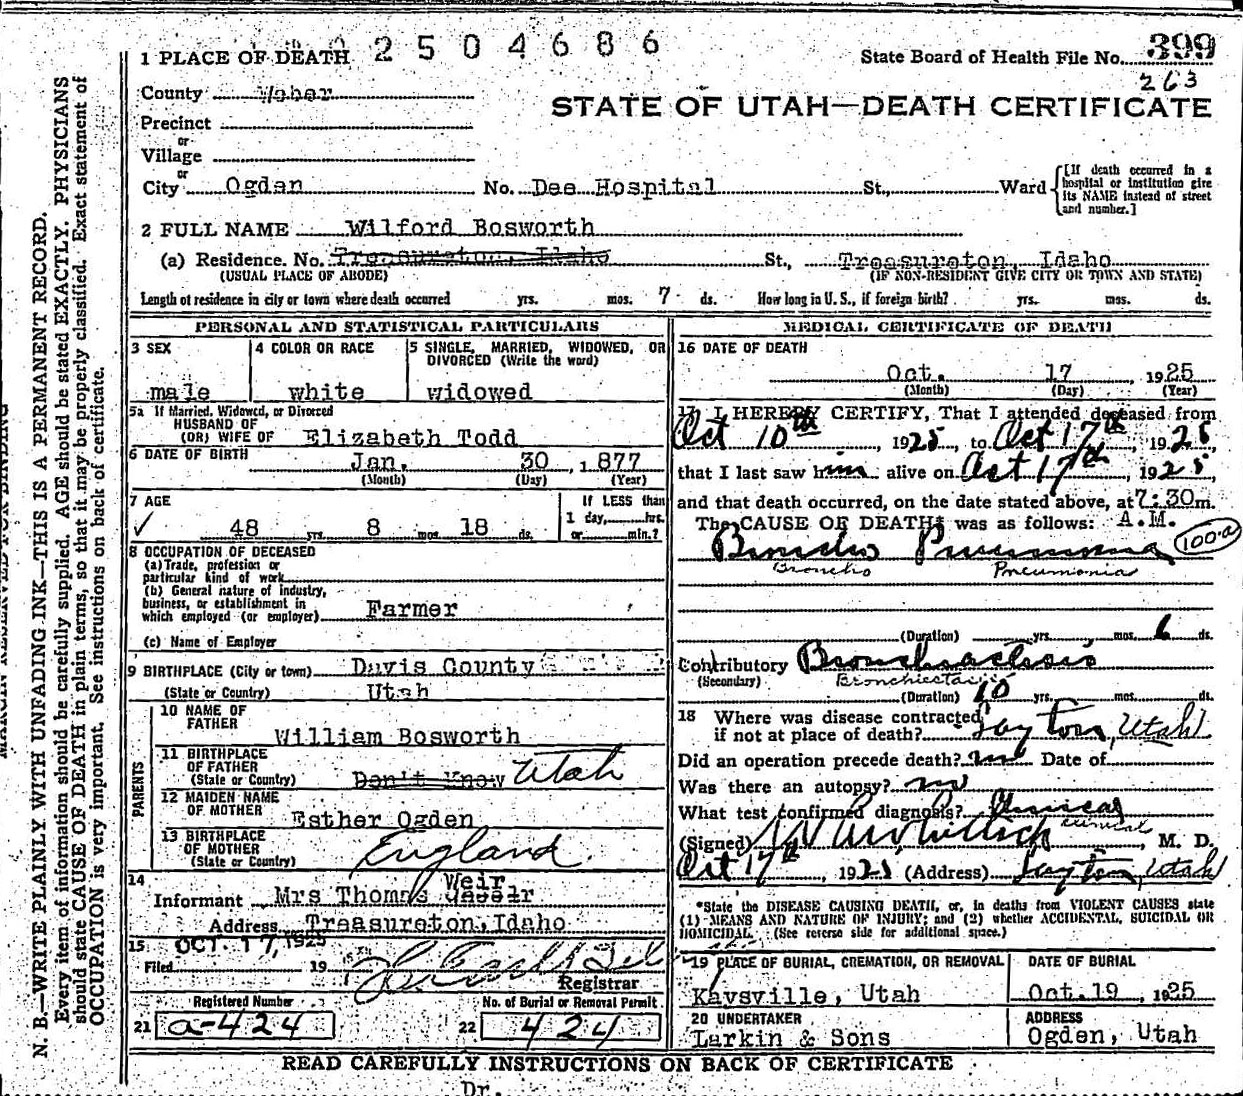 2504686
1 PLACE OF DEATH
State Board of Health File No. 399
263
County Weber
STATE OF UTAH—DEATH CERTIFICATE
Precinct
or
Village
or
City Ogden No. Dee Hospital St., Ward [If death occurred in a hospital or institution give its NAME instead of street and number.]
2 FULL NAME Wilford Bosworth
(a) Residence. No. Treasureton, Idaho St., Treasureton, Idaho
(USUAL PLACE OF ABODE) (IF NON-RESIDENT GIVE CITY OR TOWN AND STATE)
Length of residence in city or town where death occurred yrs. mos. 7 ds. How long in U. S., if foreign birth? yrs. mos. ds.
PERSONAL AND STATISTICAL PARTICULARS
3 SEX
male
4 COLOR OR RACE
white
5 SINGLE, MARRIED, WIDOWED, OR
DIVORCED (Write the word)
widowed
5a If Married, Widowed, or Divorced
HUSBAND OF
(OR) WIFE OF Elizabeth Todd
6 DATE OF BIRTH Jan. 30, 1877
(Month) (Day) (Year)
7 AGE
✓ 48 yrs. 8 mos. 18 ds.
If LESS than
1 day, hrs.
or min.?
8 OCCUPATION OF DECEASED
(a) Trade, profession or
particular kind of work
(b) General nature of industry,
business, or establishment in
which employed (or employer) Farmer
(c) Name of Employer
9 BIRTHPLACE (City or town) Davis County
(State or Country) Utah
PARENTS
10 NAME OF
FATHER
William Bosworth
11 BIRTHPLACE
OF FATHER
(State or Country) Don't Know Utah
12 MAIDEN NAME
OF MOTHER
Esther Ogden
13 BIRTHPLACE
OF MOTHER
(State or Country) England.
14
Weir
Informant Mrs Thomas
Address Treasureton, Idaho
15 OCT. 17, 1925
Filed 19
Registrar
Registered Number
21 a-424
No. of Burial or Removal Permit
22 424
MEDICAL CERTIFICATE OF DEATH
16 DATE OF DEATH
Oct. 17, 1925
(Month) (Day) (Year)
17 I HEREBY CERTIFY, That I attended deceased from
Oct 10th, 1925, to Oct 17th, 1925,
that I last saw him alive on Oct 17th, 1925,
and that death occurred, on the date stated above, at 7:30 m.
The CAUSE OF DEATH* was as follows: A.M.
Broncho Pneumonia 100-a
Broncho Pneumonia
(Duration) yrs. mos. 6 ds.
Contributory Bronchiectasis
(Secondary) Bronchiectasis
(Duration) 10 yrs. mos. ds.
18 Where was disease contracted
if not at place of death? Layton, Utah
Did an operation precede death? no Date of
Was there an autopsy? no
What test confirmed diagnosis? Clinical
clinical
(Signed) , M. D.
Oct 17th, 1925 (Address) Layton, Utah
*State the DISEASE CAUSING DEATH, or, in deaths from VIOLENT CAUSES state
(1) MEANS AND NATURE OF INJURY; and (2) whether ACCIDENTAL, SUICIDAL OR
HOMICIDAL. (See reverse side for additional space.)
19 PLACE OF BURIAL, CREMATION, OR REMOVAL
Kaysville, Utah
DATE OF BURIAL
Oct. 19, 1925
20 UNDERTAKER
Larkin & Sons
ADDRESS
Ogden, Utah
READ CAREFULLY INSTRUCTIONS ON BACK OF CERTIFICATE
Dr.
MARGIN RESERVED FOR BINDING
N. B.—WRITE PLAINLY WITH UNFADING INK—THIS IS A PERMANENT RECORD.
Every item of information should be carefully supplied. AGE should be stated EXACTLY. PHYSICIANS
should state CAUSE OF DEATH in plain terms, so that it may be properly classified. Exact statement of
OCCUPATION is very important. See instructions on back of certificate.